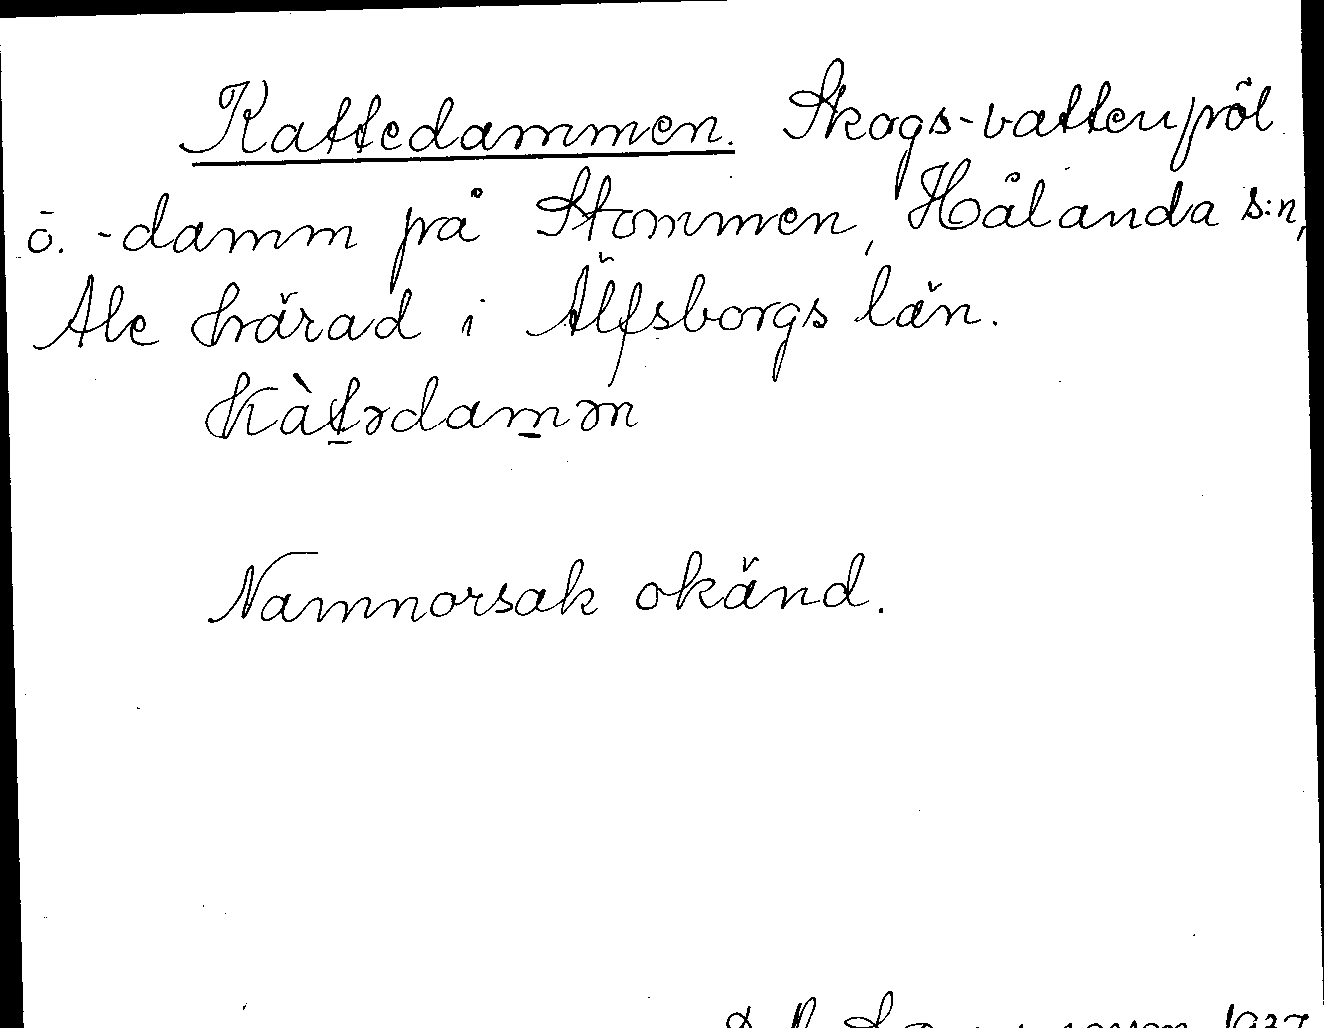 Kattedammen. Skogs-vattenpöl
o. -damm på Stommen, Hålanda s:n,
Ale härad i Älfsborgs län.
Kàt̲ədam̲ən
Namnorsak okänd.
1937